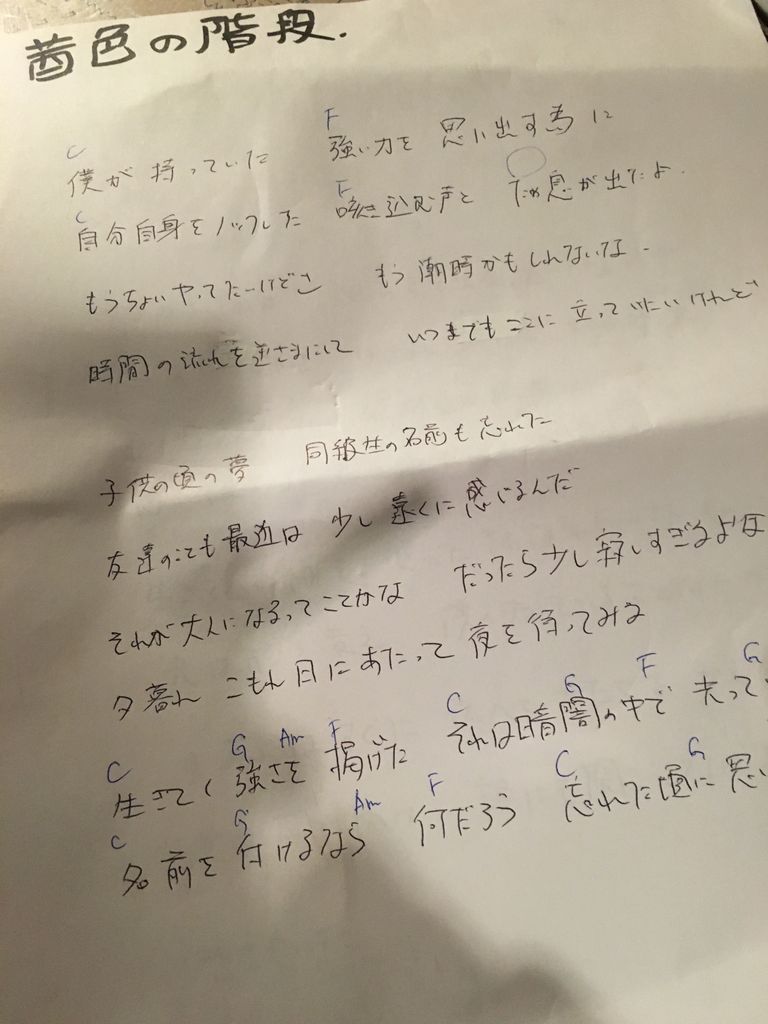 茜色の階段.
C F
僕が持っていた 強い力を 思い出す為に
C F
自分自身をノックした 咳き込む声と ため息が出たよ.
もうちょいやってたーけどさ もう潮時かもしれないな.
時間の流れを逆さまにして いつまでもここに立っていたいけれど
子供の頃の夢 同級生の名前も忘れた
友達のことも最近は 少し遠くに感じるんだ
それが大人になるってことかな だったら少し寂しすぎるよな
夕暮れ こもれ日にあたって 夜を待ってみる
C G Am F C G F G
生きてく強さを 掲げた それは暗闇の中で 光って
C G Am F C G
名前を付けるなら 何だろう 忘れた頃に 思い